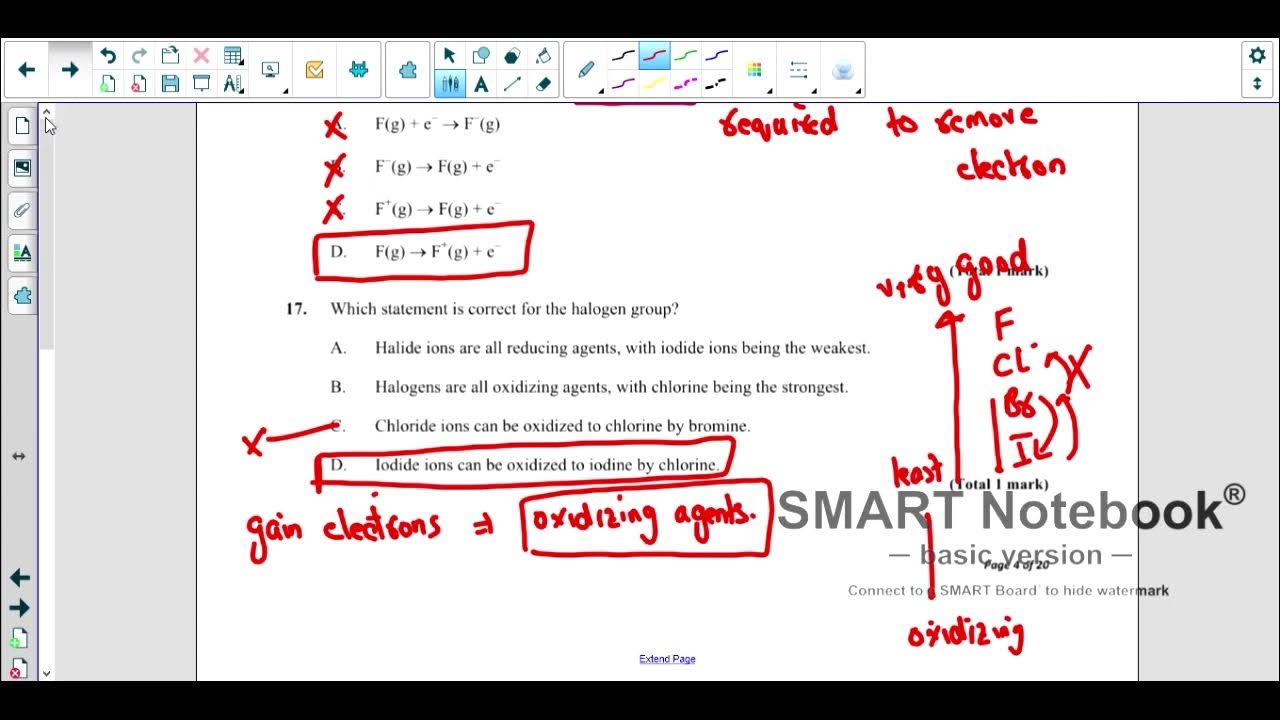 F(g) + e⁻ → F⁻(g)
required to remove
electron
F⁻(g) → F(g) + e⁻
F⁺(g) → F(g) + e⁻
D. F(g) → F⁺(g) + e⁻
very good
mark)
17. Which statement is correct for the halogen group?
F
A. Halide ions are all reducing agents, with iodide ions being the weakest.
Cl
B. Halogens are all oxidizing agents, with chlorine being the strongest.
Br
C. Chloride ions can be oxidized to chlorine by bromine.
I
D. Iodide ions can be oxidized to iodine by chlorine.
least
(Total 1 mark)
gain electrons ⇒ oxidizing agents.
SMART Notebook®
— basic version —
Page 4 of 20
Connect to a SMART Board to hide watermark
oxidizing
Extend Page